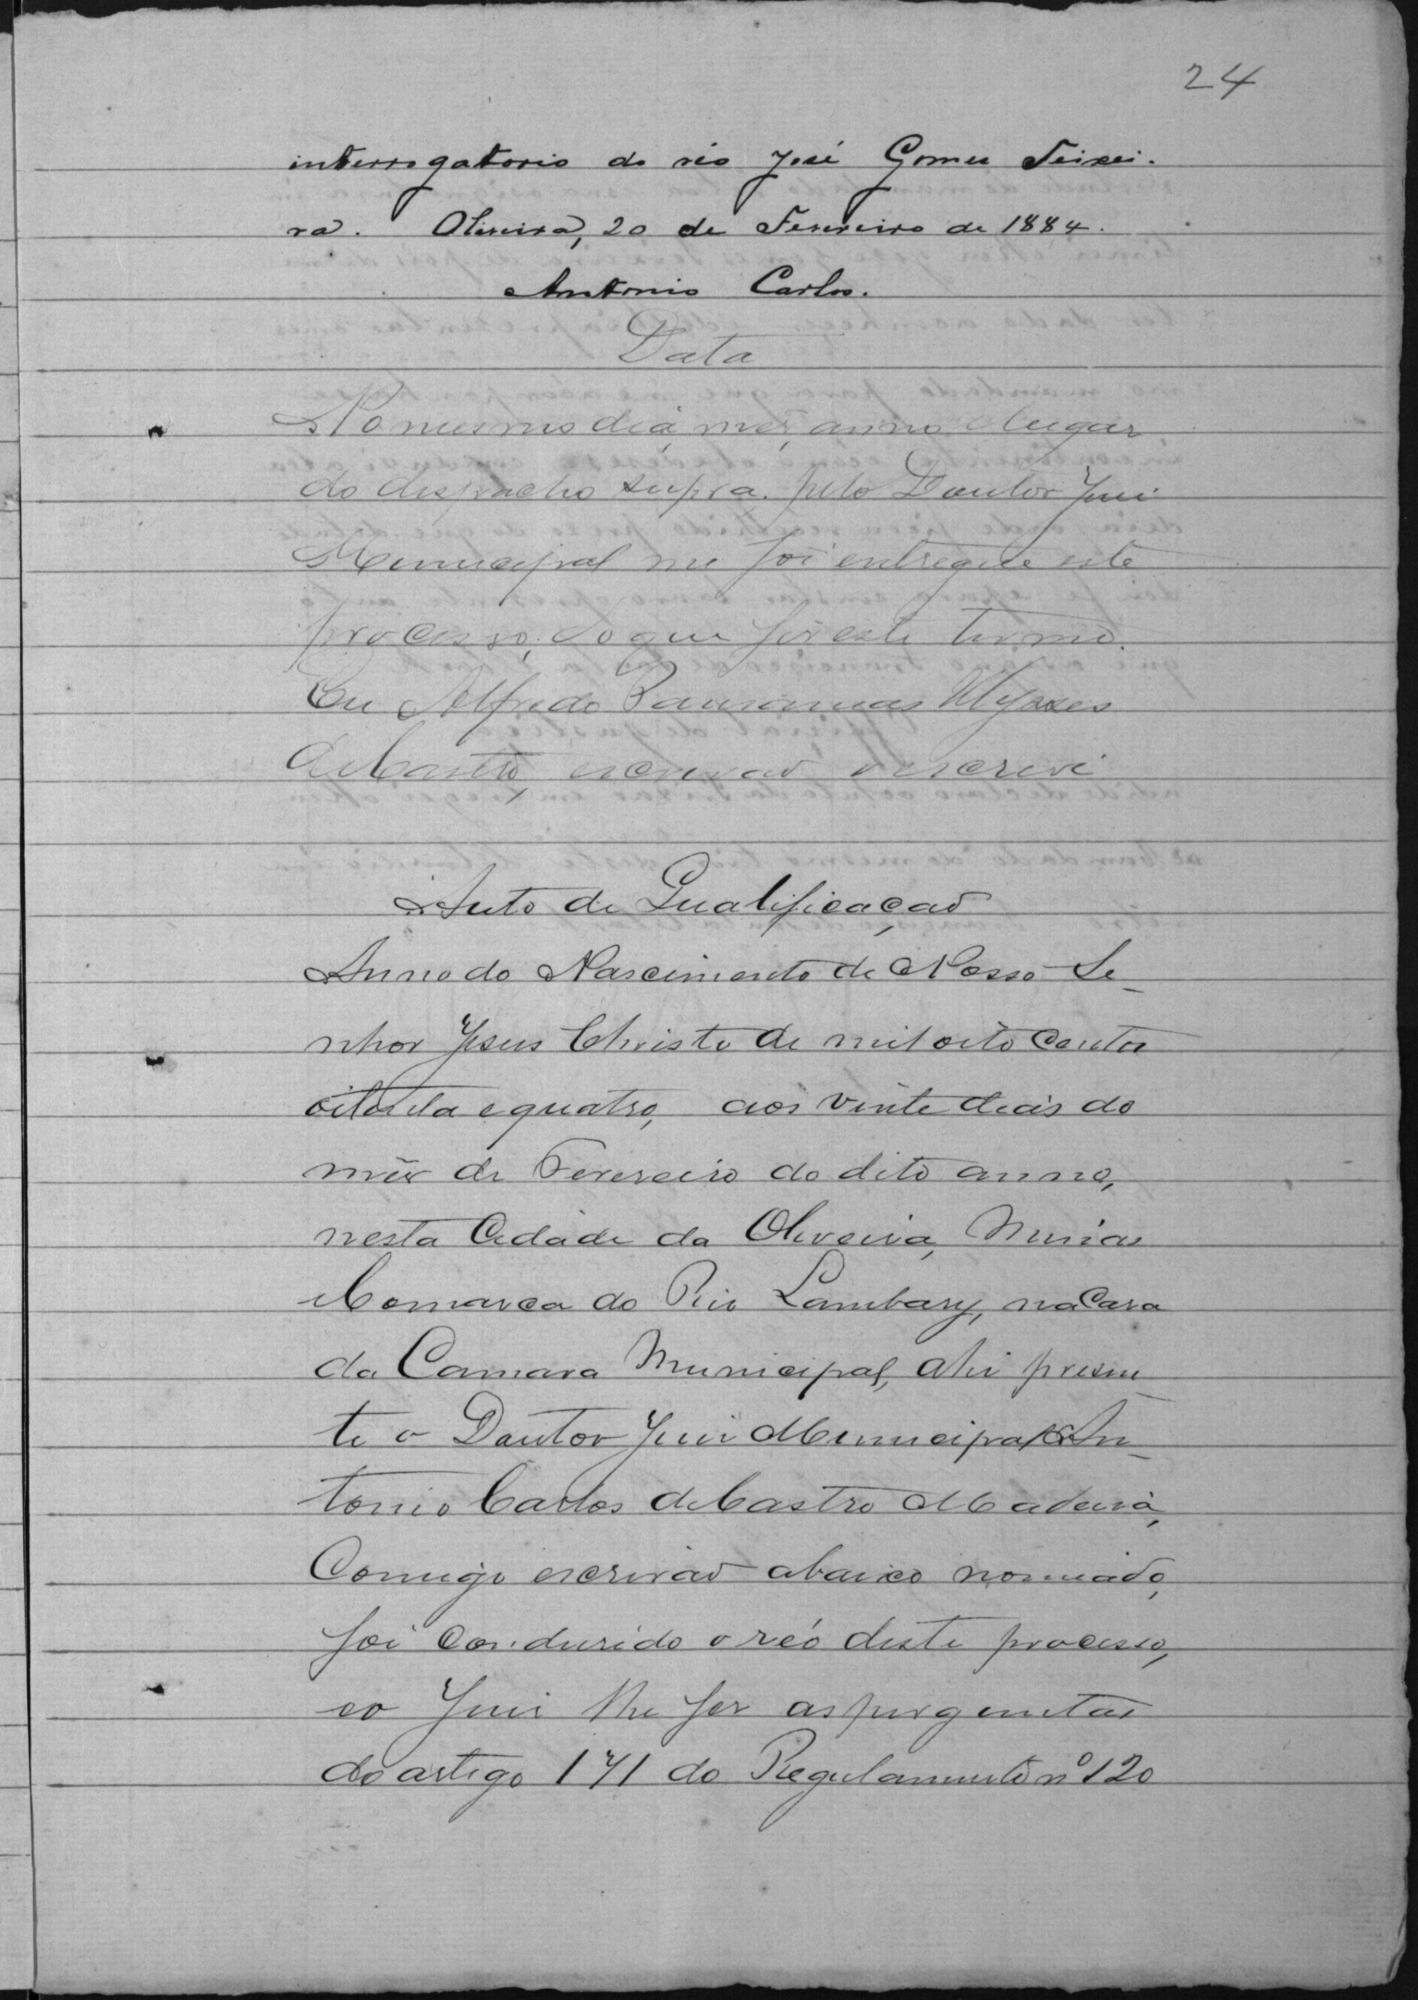 24
interrogatorio do réo José Gomes Teixei-
ra. Oliveira, 20 de Fevereiro de 1884.
Antonio Carlos.
Data
No mesmo dia, mez, anno e lugar
do despacho supra, pelo Doutor Juiz
Municipal me foi entregue este
processo; do que fiz este termo.
Eu Alfredo Pausanias Ulysses
de Castro, escrivaõ o escrevi
Auto de Qualificaçaõ
Anno do Nascimento de Nosso Se-
nhor Jesus Christo de mil oito centos
oitenta e quatro, aos vinte dias do
mêz de Fevereiro do dito anno,
nesta Cidade da Oliveira, Minas
Comarca do Rio Lambary, na Casa
da Camara Municipal, ahi presen-
te o Doutor Juiz Municipal An-
tonio Carlos de Castro Madeira,
Comigo escrivaõ abaixo nomiado,
foi conduzido o réo deste processo,
eo Juiz lhe fez as perguntas
do artigo 171 do Regulamento nº 120